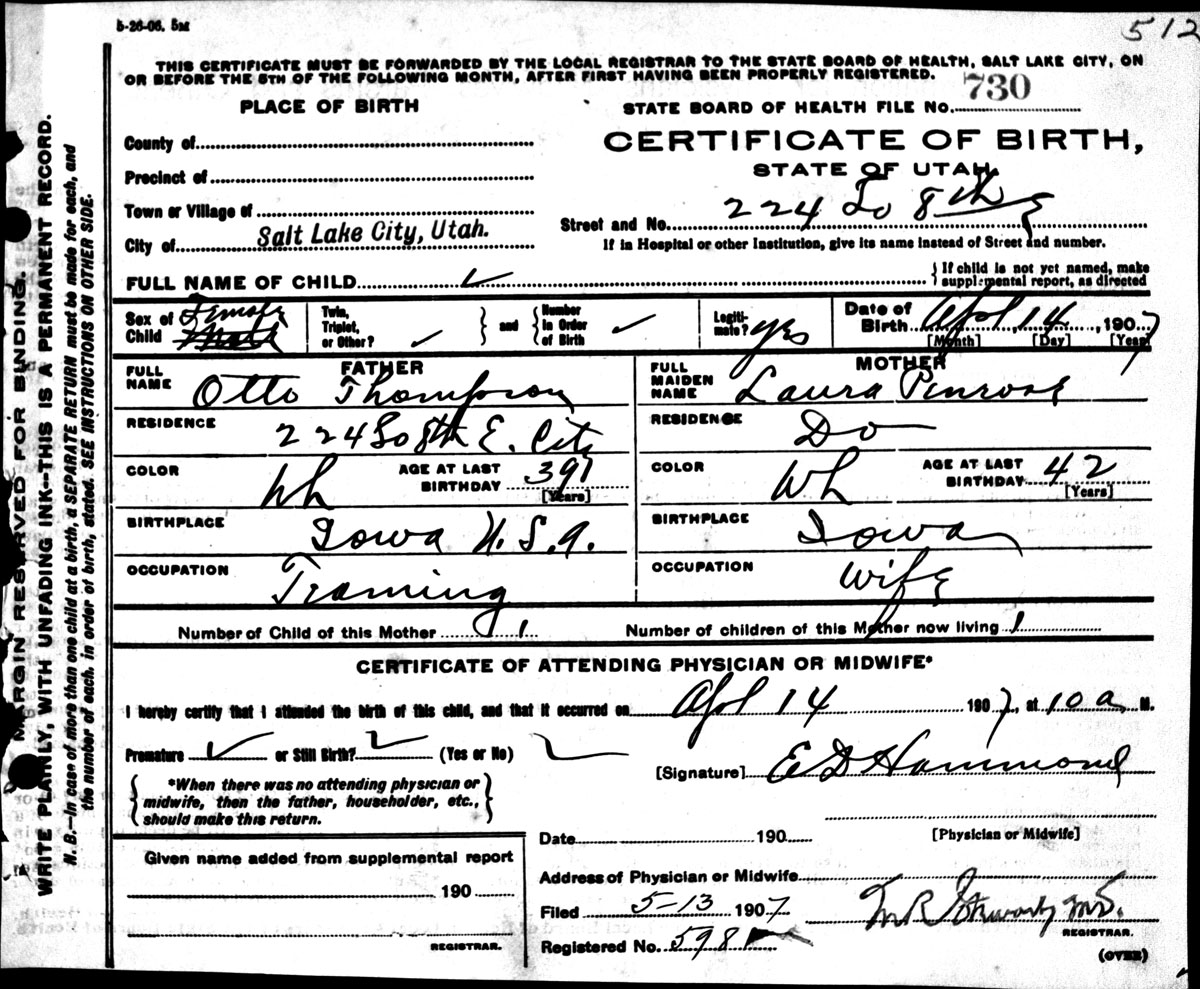 5-26-06. 5M
512
THIS CERTIFICATE MUST BE FORWARDED BY THE LOCAL REGISTRAR TO THE STATE BOARD OF HEALTH, SALT LAKE CITY, ON
OR BEFORE THE 5TH OF THE FOLLOWING MONTH, AFTER FIRST HAVING BEEN PROPERLY REGISTERED.
PLACE OF BIRTH
STATE BOARD OF HEALTH FILE NO. 730
County of
CERTIFICATE OF BIRTH,
Precinct of
STATE OF UTAH
Town or Village of
Street and No. 224 So 8th E
City of Salt Lake City, Utah.
If in Hospital or other Institution, give its name instead of Street and number.
FULL NAME OF CHILD ✓ } If child is not yet named, make
supplemental report, as directed
Sex of Child Female Male
Twin, Triplet, or Other? ✓ } and { Number in Order of Birth ✓
Legiti-mate? yes
Date of Birth Apl 14, 1907
[Month] [Day] [Year]
FATHER
FULL NAME Otto Thompson
MOTHER
FULL MAIDEN NAME Laura Penrose
RESIDENCE 224 So 8th E. City
RESIDENCE Do
COLOR Wh AGE AT LAST BIRTHDAY 39 [Years]
COLOR Wh AGE AT LAST BIRTHDAY 42 [Years]
BIRTHPLACE Iowa U.S.A.
BIRTHPLACE Iowa
OCCUPATION Teaming
OCCUPATION Wife
Number of Child of this Mother 1 Number of children of this Mother now living 1
CERTIFICATE OF ATTENDING PHYSICIAN OR MIDWIFE*
I hereby certify that I attended the birth of this child, and that it occurred on Apl 14 1907, at 10 a M.
Premature ✓ or Still Birth? ✓ (Yes or No) ✓
[Signature] E D Hammond
{ *When there was no attending physician or
midwife, then the father, householder, etc.,
should make this return. }
Date 190 [Physician or Midwife]
Given name added from supplemental report
190
REGISTRAR.
Address of Physician or Midwife
Filed 5-13 1907 M R Stewart M.D.
REGISTRAR.
Registered No. 598
(OVER)
MARGIN RESERVED FOR BINDING.
WRITE PLAINLY, WITH UNFADING INK--THIS IS A PERMANENT RECORD.
N. B.—In case of more than one child at a birth, a SEPARATE RETURN must be made for each, and
the number of each, in order of birth, stated. SEE INSTRUCTIONS ON OTHER SIDE.